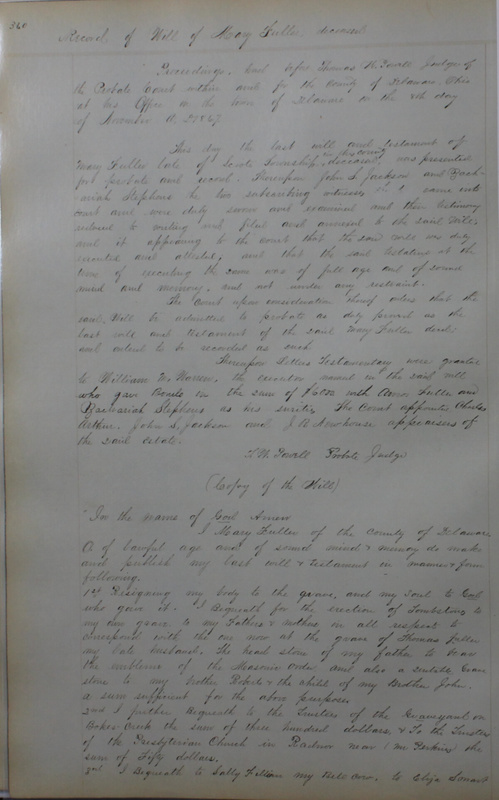 360
Record of Will of Mary Fuller deceased
Proceedings, had before Thomas W. Powell Judge of
the Probate Court within and for the County of Delaware, Ohio
at his Office in the town of Delaware on the 8th day
of November A.D. 1867
This day the last will and testament of
Mary Fuller late of Scioto Township, in this county deceased, was presented
for probate and record. Thereupon John S. Jackson and Zach-
ariah Stephens the two subscribing witnesses to same into
court and were duly sworn and examined and their testimony
reduced to writing and filed and annexed to the said Will,
and it appearing to the court that the said will was duly
executed and attested, and that the said testatrix at the
time of executing the same was of full age and of sound
mind and memory, and not under any restraint.
The Court upon consideration thereof orders that the
said Will be admitted to probate as duly proved as the
last will and testament of the said Mary Fuller decd.
and ordered to be recorded as such
Thereupon Letters Testamentary were granted
to William W. Warren, the executor named in the said will
who gave Bonds in the sum of with Fuller and
Zachariah Stephens as his sureties. The Court appointed Charles
Arthur. John S. Jackson and J. B. Newhouse appraisers of
the said estate.
T. W. Powell Probate Judge
(Copy of the Will)
In the name of God Amen
I Mary Fuller of the County of Delaware
O of lawful age and of sound mind & memory do make
and publish my last will & testament in manner & form
following.
1st Resigning my body to the grave, and my soul to God
who gave it. I Bequeath for the erection of Tombstones to
my own grave to my Fathers & mothers in all respect to
correspond with the one now at the grave of Thomas Fuller
my late husband. The head stone of my father to bear
the emblems of the Masonic Order and also a suitable Grave
stone to my brother Roberts & the child of my Brother John.
a sum sufficient for the above purposes
2nd I further Bequeath to the Trustees of the Graveyard on
Bokes Creek the sum of three hundred dollars, & To the Trustees
of the Presbyterian Church in Radnor near (Mr Perkins) the
sum of Fifty dollars.
3rd I Bequeath to Sally my Bell Cow. to Eliza